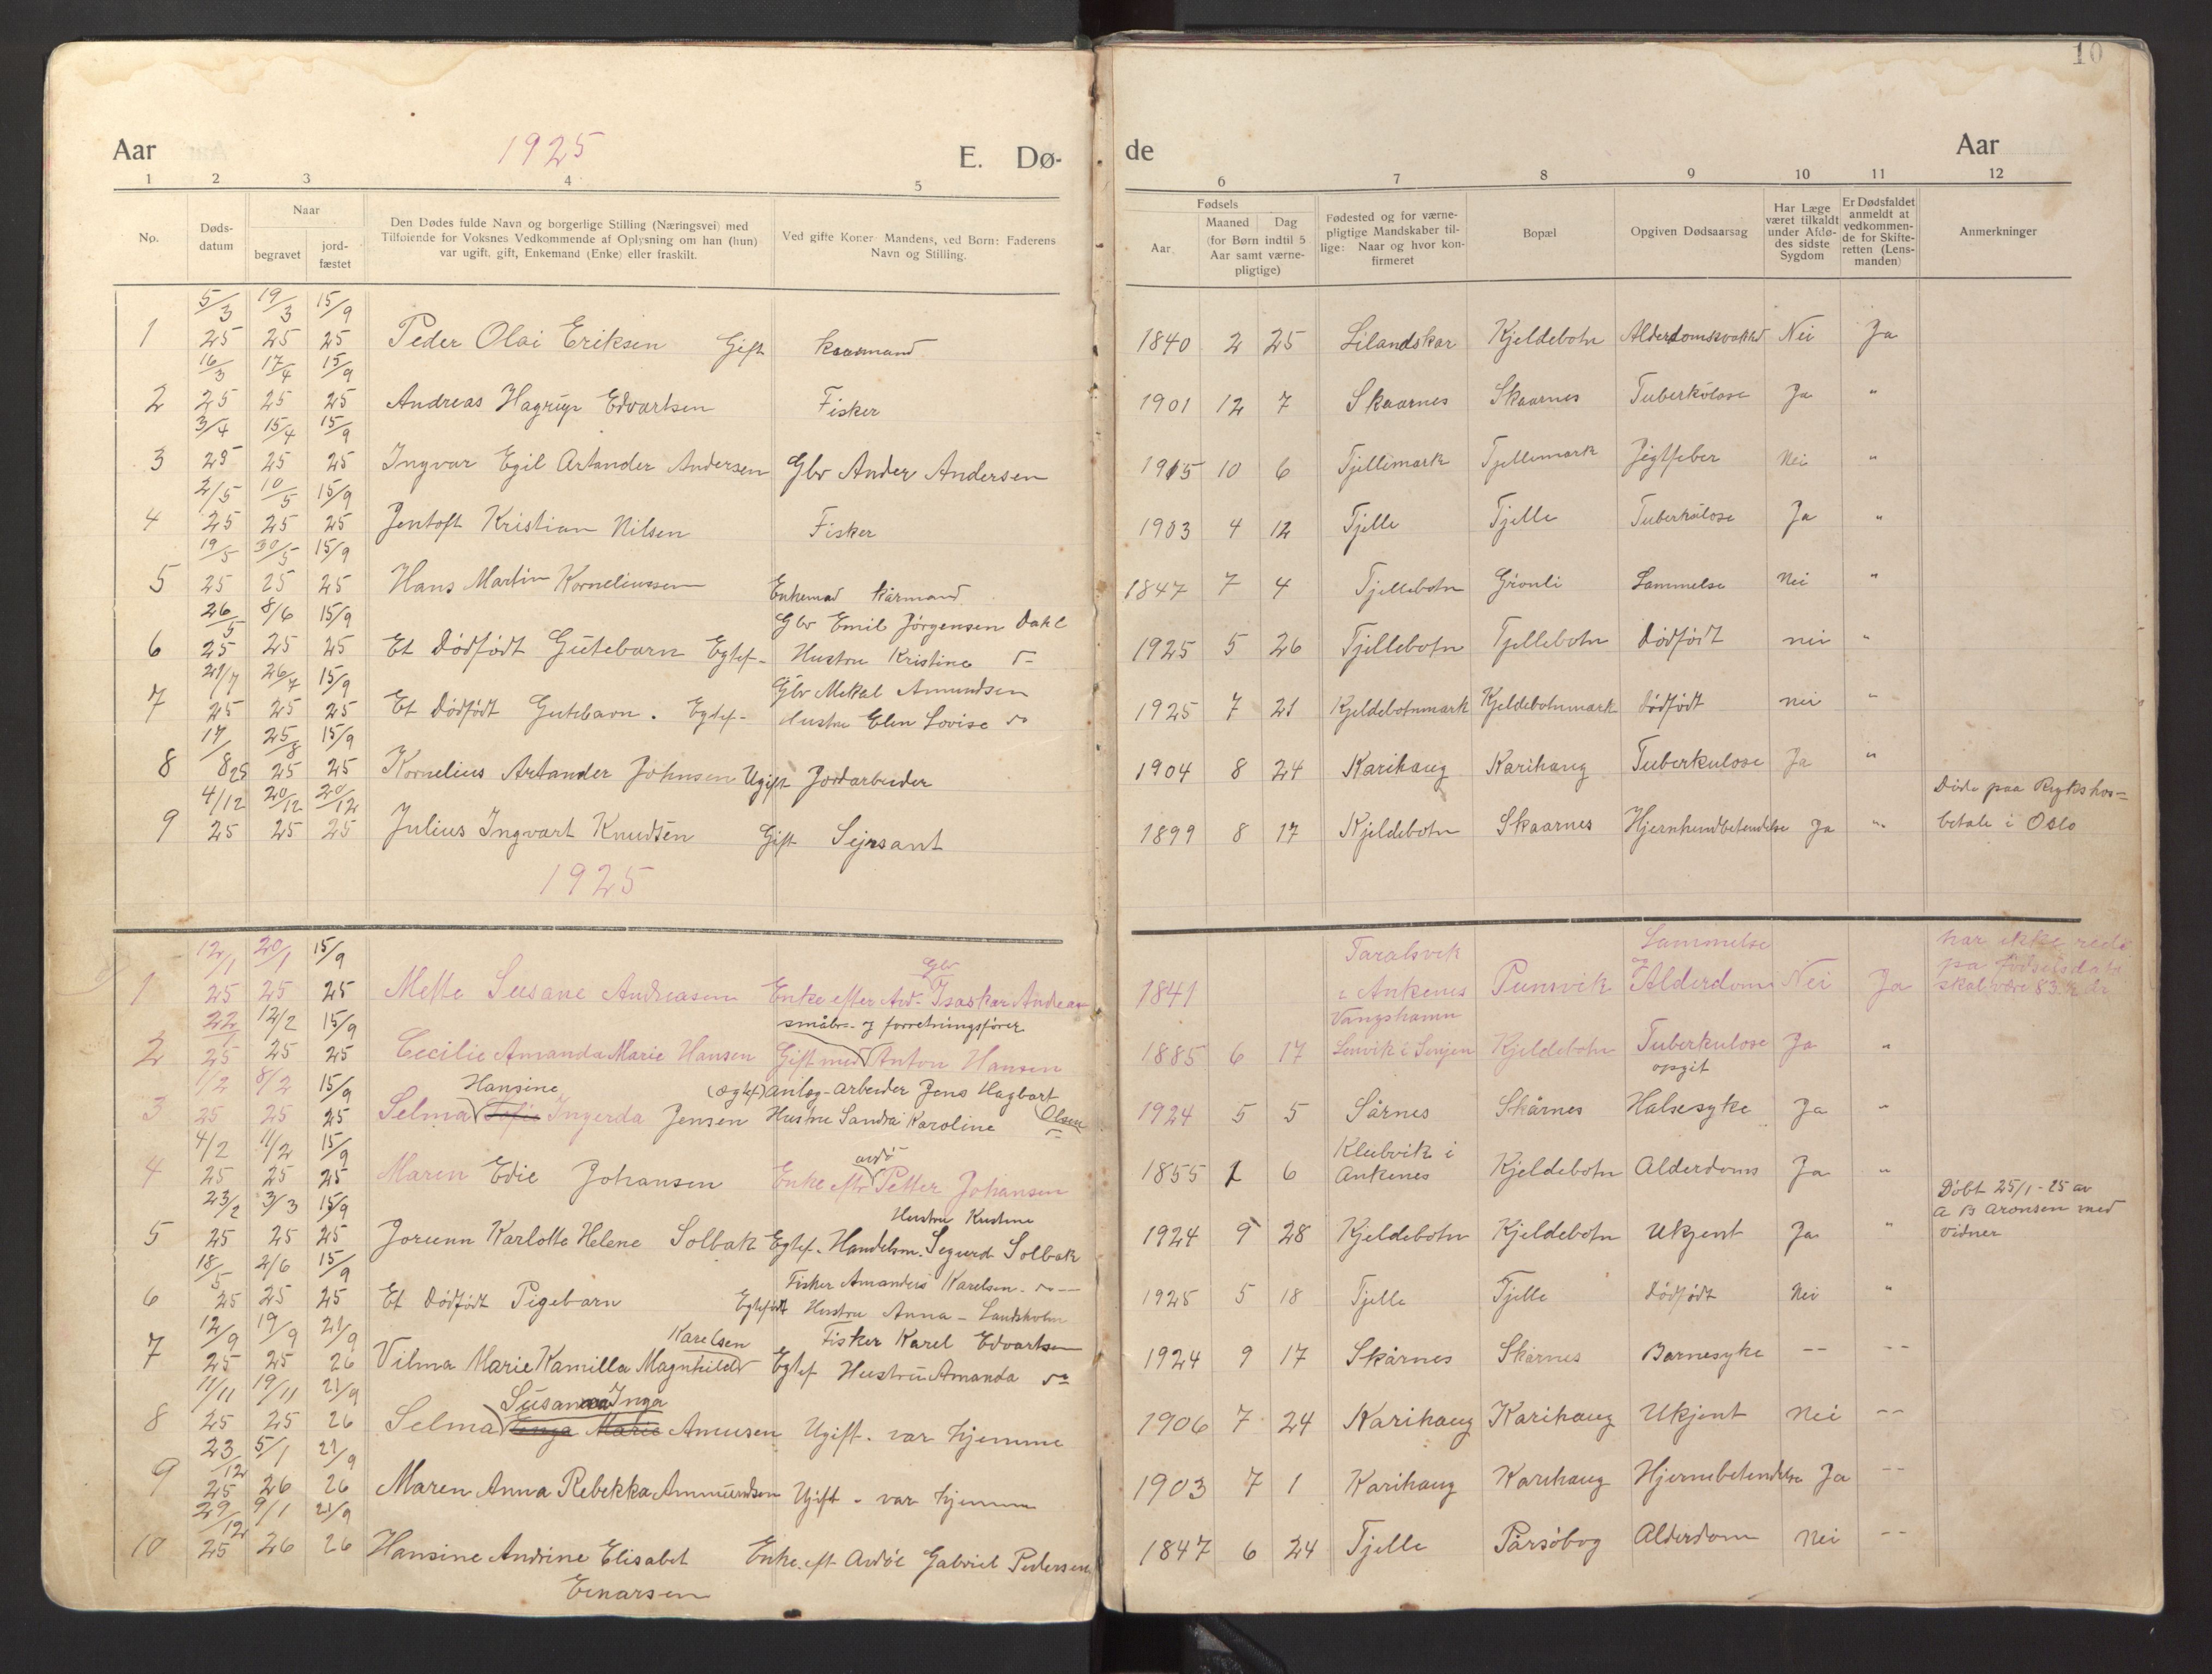 10
Aar 1925 E. Dø- de Aar
1 2 3 4 5 6 7 8 9 10 11 12
No.
Døds-
datum
Naar
begravet
jord-
fæstet
Den Dødes fulde Navn og borgerlige Stilling (Næringsvei) med
Tilføiende for Voksnes Vedkommende af Oplysning om han (hun)
var ugift, gift, Enkemand (Enke) eller fraskilt.
Ved gifte Koner: Mandens, ved Børn: Faderens
Navn og Stilling.
Fødsels
Aar
Maaned Dag
(for Børn indtil 5
Aar samt værne-
pligtige)
Fødested og for værne-
pligtige Mandskaber til-
lige: Naar og hvor kon-
firmeret
Bopæl
Opgiven Dødsaarsag
Har Læge
været tilkaldt
under Afdø-
des sidste
Sygdom
Er Dødsfaldet
anmeldt at
vedkommen-
de for Skifte-
retten (Lens-
manden)
Anmerkninger
5/3 19/3 15/9
1 25 25 25 Peder Olai Eriksen Gift kaarmand 1840 2 25 Lilandskar Kjeldebotn Nei Ja
16/3 17/4 15/9
2 25 25 25 Andreas Hagrup Edvartsen Fisker 1901 12 7 Skaarnes Skaarnes Tuberkulose Ja "
3/4 15/4 15/9
3 25 25 25 Ingvar Egil Artander Andersen Gbr Ander Andersen 1915 10 6 Tjellemark Tjellemark Jigtfeber Nei "
2/5 10/5 15/9
4 25 25 25 Jentoft Kristian Nilsen Fisker 1903 4 12 Tjelle Tjelle Tuberkulose Ja "
19/5 30/5 15/9
5 25 25 25 Hans Martin Korneliussen Enkemad kårmand 1847 7 4 Tjellebotn Grønli Lammelse Nei "
26/5 8/6 15/9 Gbr Emil Jørgensen Dahl
6 25 25 25 Et Dødfødt Gutebarn Egtef- Hustru Kristine 1925 5 26 Tjellebotn Tjellebotn Dødfødt nei "
21/7 26/7 15/9 Gbr Mekal Amundsen
7 25 25 25 Et Dødfødt Gutebarn. Egtef- Hustru Elen Lovise 1925 7 21 Kjeldebotnmark Kjeldebotnmark Dødfødt nei "
17/ 25/8 15/9
8 8 25 25 25 Kornelius Artander Johnsen Ugift Jordarbeider 1904 8 24 Karihaug Karihaug Tuberkulose Ja "
4/12 20/12 20/12 Døde paa Rykshos-
9 25 25 25 Julius Ingvart Knudsen Gift Sejrsant 1899 8 17 Kjeldebotn Skaarnes Hjernhundbetendelse Ja " betale i Oslo
1925
12/1 20/1 15/9 Gbr Taralsvik Lammelse har ikke rede
1 25 25 25 Mette Susane Andreasen Enke efter Avd. Isaskar Andreas 1841 i Ankenes Punsvik Alderdom Nei Ja på fødselsdato
skal være 83 ½ år
22/1 12/2 15/9 småbr. og forretningsfører Vangshamn
2 25 25 25 Cecilie Amanda Marie Hansen Gift med Anton Hansen 1885 6 17 Lenvik i Senjen Kjeldebotn Tuberkulose Ja "
opgit
1/2 8/2 15/9 Hansine (Egtef) Anleg-arbeider Jens Hagbart
3 25 25 25 Selma Sofie Ingerda Jensen Hustru Sandra Karoline Olsen 1924 5 5 Sårnes Skårnes Halsesyke Ja "
4/2 11/2 15/9 avdø Kleibvik i
4 25 25 25 Maren Edie Johansen Enke eftr Petter Johansen 1855 1 6 Ankenes Kjeldebotn Alderdoms Ja "
23/2 3/3 15/9 Hustru Kristine Døbt 25/1-25 av
5 25 25 25 Jorunn Karlotte Helene Solbak Egtef. Handelsm. Segurd Solbak 1924 9 28 Kjeldebotn Kjeldebotn Ukjent Ja " A B Aronsen med
vidner
18/5 2/6 15/9 Fisker Amanders Karelsen
6 25 25 25 Et Dødfødt Pigebarn Egtefødt Hustru Anna - Landsholm 1925 5 18 Tjelle Tjelle Dødfødt Nei "
12/9 19/9 21/9 Karelsen Fisker Karel Edvartsen
7 25 25 26 Vilma Marie Kamilla Magnhild Egtef Hustru Amanda 1924 9 17 Skårnes Skårnes Barnesyke -- --
11/11 19/11 21/9 Susanna Inga
8 25 25 26 Selma Inga Marie Amusen Ugift. var hjemme 1906 7 24 Karihaug Karihaug Ukjent Nei --
23/12 5/1 21/9
9 25 26 26 Maren Anna Rebekka Ammundsen Ugift - var hjemme 1903 7 1 Karihaug Karihaug Hjernebetendelse Ja --
29/12 9/1 21/9
10 25 26 26 Hansine Andrine Elisabet Enke eft Avdøe Gabriel Pedersen 1847 6 24 Tjelle Pårsøbog Alderdom Nei --
Einarsen